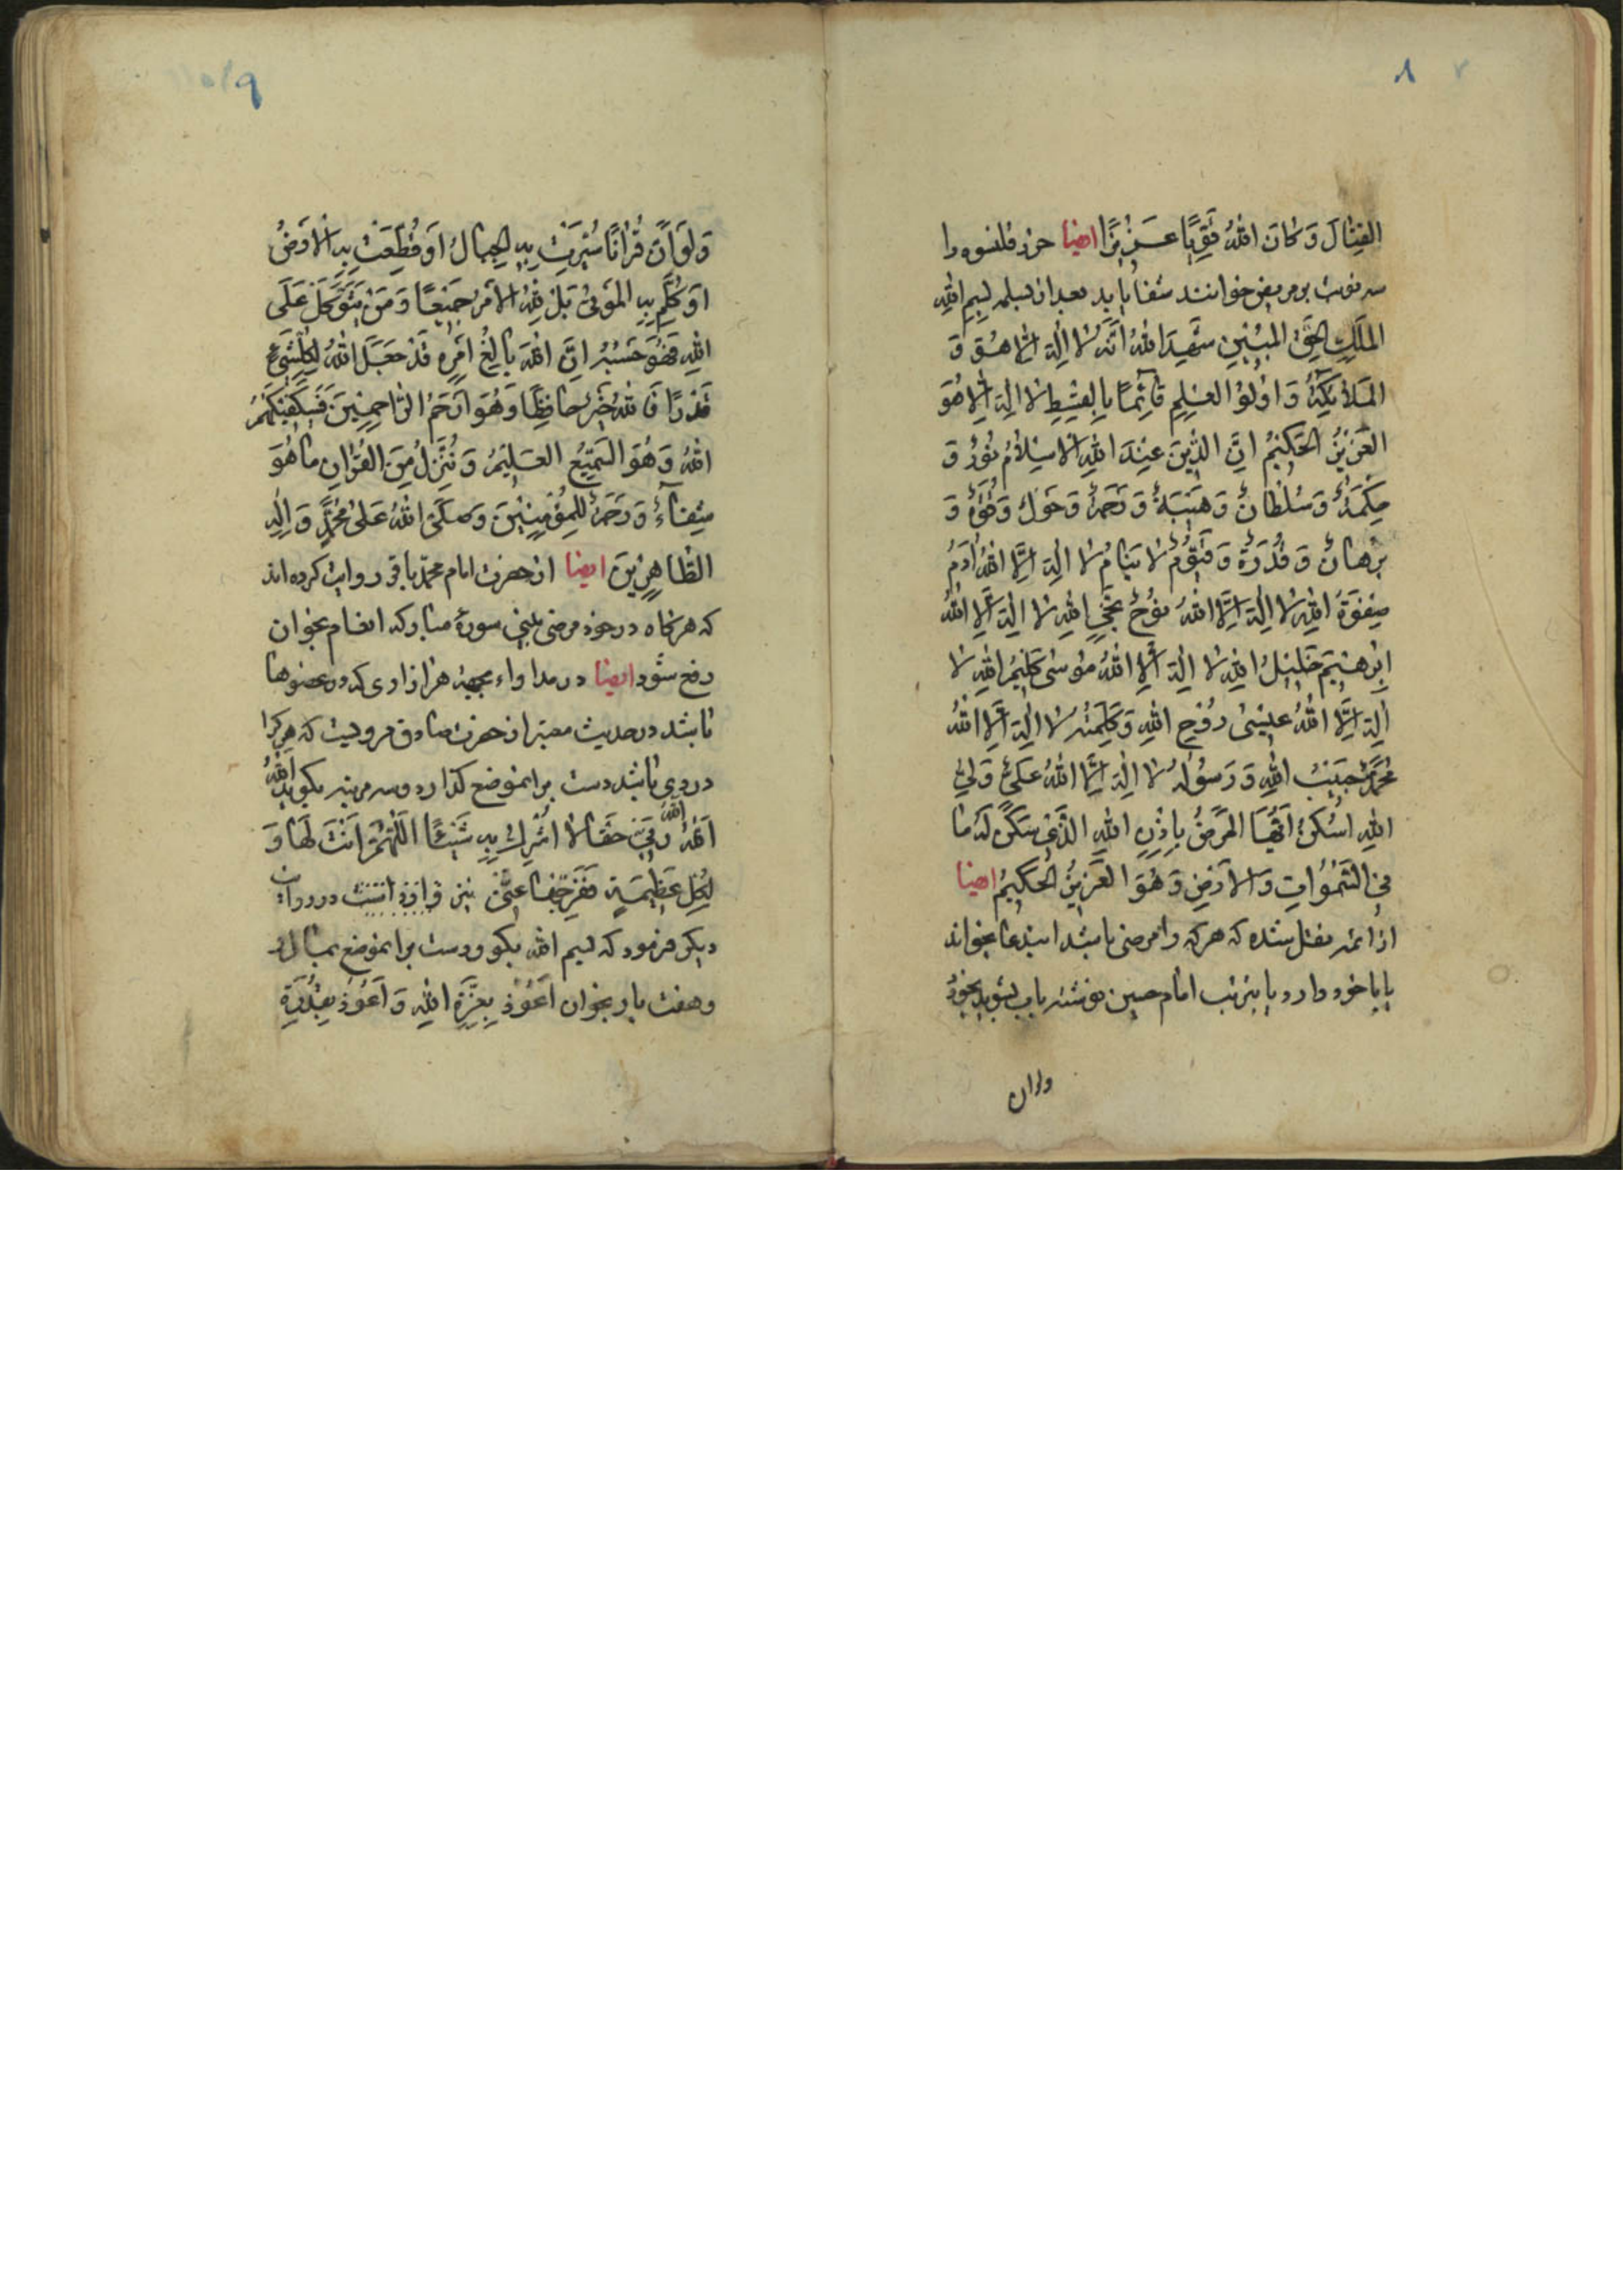 ٨
القِتٰالَ وَ كٰانَ اللهُ قَوِیًّا عَزیزًا ایضا حرز قلنسوه را
سه نوبت بر مریض خوانند شفا یابد بعد از بسمله بِسمِ اللهِ
المَلَکِ الحَقِّ المُبینِ شَهِدَ اللهُ اَنَّهُ لا اِلٰهَ اِلّا هُوَ وَ
المَلائِکَةُ وَ اُولُوا العِلمِ قآئِمًا بِالقِسطِ لا اِلٰهَ اِلّا هُوَ
العَزیزُ الحَکیمُ اِنَّ الدّینَ عِندَ اللهِ الاِسلامُ نُورٌ وَ
حِکمَةٌ وَ سُلطانٌ وَ هَیبَةٌ وَ رَحمَةٌ وَ حَولٌ وَ قُوَّةٌ وَ
بُرهانٌ وَ قُدرَةٌ وَ قَیّومٌ لا یَنامُ لا اِلٰهَ اِلَّا اللهُ اٰدَمُ
صِفوَةُ اللهِ لا اِلٰهَ اِلَّا اللهُ نُوحٌ نَجِیُّ اللهِ لا اِلٰهَ اِلَّا اللهُ
اِبرهیمُ خَلیلُ اللهِ لا اِلٰهَ اِلَّا اللهُ مُوسٰی کَلیمُ اللهِ لا
اِلٰهَ اِلَّا اللهُ عیسٰی رُوحُ اللهِ وَ کَلِمَتُهُ لا اِلٰهَ اِلَّا اللهُ
مُحَمَّدٌ حَبیبُ اللهِ وَ رَسُولُهُ لا اِلٰهَ اِلَّا اللهُ عَلِیٌّ وَلِیُّ
اللهِ اُسکُن اَیُّهَا المَرَضُ بِاِذنِ اللهِ الَّذی سَکَنَ لَهُ ما
فِی السَّمٰوٰاتِ وَ الاَرضِ وَ هُوَ العَزیزُ الحَکیمُ ایضا
از ائمه نقل شده که هر که را مرضی باشد ایندعا بخواند
یا با خود دارد یا بتربت امام حسین نوشته باب بشوید بخورد
و لو ان
٩
وَ لَو اَنَّ قُراٰنًا سُیِّرَت بِهِ الجِبالُ اَو قُطِّعَت بِهِ الاَرضُ
اَو کُلِّمَ بِهِ المَوتٰی بَل لِلّٰهِ الاَمرُ جَمیعًا وَ مَن یَتَوَکَّل عَلَی
اللهِ فَهُوَ حَسبُهُ اِنَّ اللهَ بالِغُ اَمرِهِ قَد جَعَلَ اللهُ لِکُلِّشَیءٍ
قَدرًا فَاللهُ خَیرٌ حافِظًا وَ هُوَ اَرحَمُ الرّاحِمینَ فَسَیَکفیکَهُمُ
اللهُ وَ هُوَ السَّمیعُ العَلیمُ وَ نُنَزِّلُ مِنَ القُراٰنِ ما هُوَ
شِفآءٌ وَ رَحمَةٌ لِلمُؤمِنینَ وَ صَلَّی اللهُ عَلٰی مُحَمَّدٍ وَ اٰلِهِ
الطّاهِرینَ ایضا از حضرت امام محمّد باقر روایت کرده اند
که هر گاه در خود مرضی بینی سورهٔ مبارکه انعام بخوان
رفع شود ایضا در مداواء مجمیع هر ازاری که در عضوها
باشد در حدیث معتبر از حضرت صادق مرویست که هر کرا
دردی باشد دست بر انموضع گذارد و سه مرتبه بگوید اَللهُ
اَللهُ اَللهُ رَبّی حَقًّا لا اُشرِكُ بِهِ شَیئًا اَللّهُمَّ اَنتَ لَها وَ
لِکُلِّ عَظیمَةٍ فَفَرِّجها عَنّی در روایت
دیگر فرمود که بسم الله بگو و دست بر انموضع بمال
و هفت بار بخوان اَعُوذُ بِعِزَّةِ اللهِ وَ اَعُوذُ بِقُدرَةِ